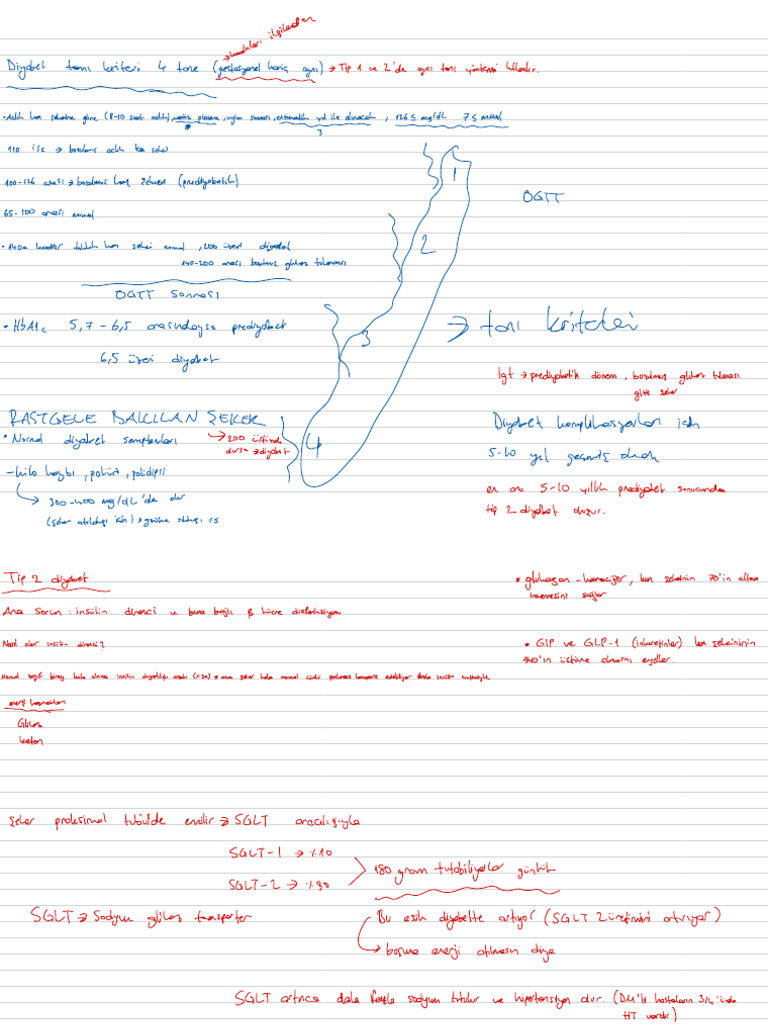 kadınları ilgilendiren
Diyabet tanı kriteri 4 tane (gestasyonel hariç aynı) → Tip 1 ve 2'de aynı tanı yöntemi kullanılır.
• Açlık kan şekerine göre (8-10 saat açlık), venöz plazma, uygun zaman, enzimatik yol ile alınacak, 126 ≤ mg/dL 7 ≤ mmol
3
110 ise → bozulmuş açlık kan şekeri
1
100-126 arası → bozulmuş kan şekeri (prediyabetik)
OGTT
65-100 arası normal
2
• 140a kadar tokluk kan şekeri normal, 200 üzeri diyabet
140-200 arası bozulmuş glikoz toleransı
OGTT Sonrası
• HbA1c 5,7 - 6,5 arasındaysa prediyabet
→ tanı kriterleri
3
6,5 üzeri diyabet
Igt → prediyabetik dönem, bozulmuş glikoz toleransı
RASTGELE BAKILAN ŞEKER
Diyabet komplikasyonları için
• Normal diyabet semptomları
→ 200 üstünde
dursa → diyabet
4
5-10 yıl geçmiş olmalı
- kilo kaybı, poliüri, polidipsi
en az 5-10 yıllık prediyabet sonucunda
→ 300-400 mg/dL'de olur
tip 2 diyabet oluşur.
(şeker atıldığı için)
Tip 2 diyabet
• glukagon - karaciğer, kan şekerinin 70'in altına
inmemesini sağlar
Ana Sorun: insülin direnci ve buna bağlı β hücre disfonksiyonu
Nasıl olur insülin direnci?
• GIP ve GLP-1 (inkretinler) kan şekerinin
140'ın üstüne çıkmasını engeller.
enerji kaynakları
Glikoz
keton
Şeker proksimal tübülde emilir → SGLT aracılığıyla
SGLT-1 → %10
180 gram tutabiliyorlar günlük
SGLT-2 → %90
SGLT → Sodyum glikoz transporter
Bu eşik diyabette artıyor (SGLT 2 üretimini artırıyor)
→ boşuna enerji atılmasın diye
SGLT artınca daha fazla sodyum tutulur ve hipertansiyon olur. (DM'li hastaların 3/4'ünde
HT vardır)